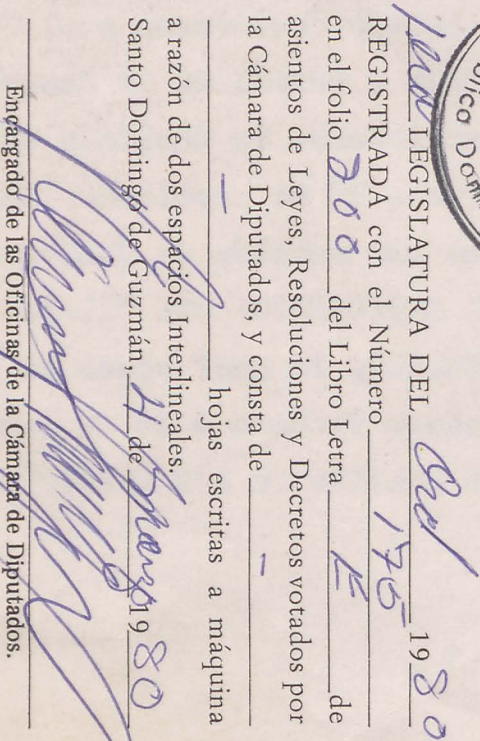 ública Domini
1era LEGISLATURA DEL Ord 1980
REGISTRADA con el Número 175
en el folio 200 del Libro Letra K de
asientos de Leyes, Resoluciones y Decretos votados por
la Cámara de Diputados, y consta de —
— hojas escritas a máquina
a razón de dos espacios Interlineales.
Santo Domingo de Guzmán, 4 de Marzo 1980
Encargado de las Oficinas de la Cámara de Diputados.